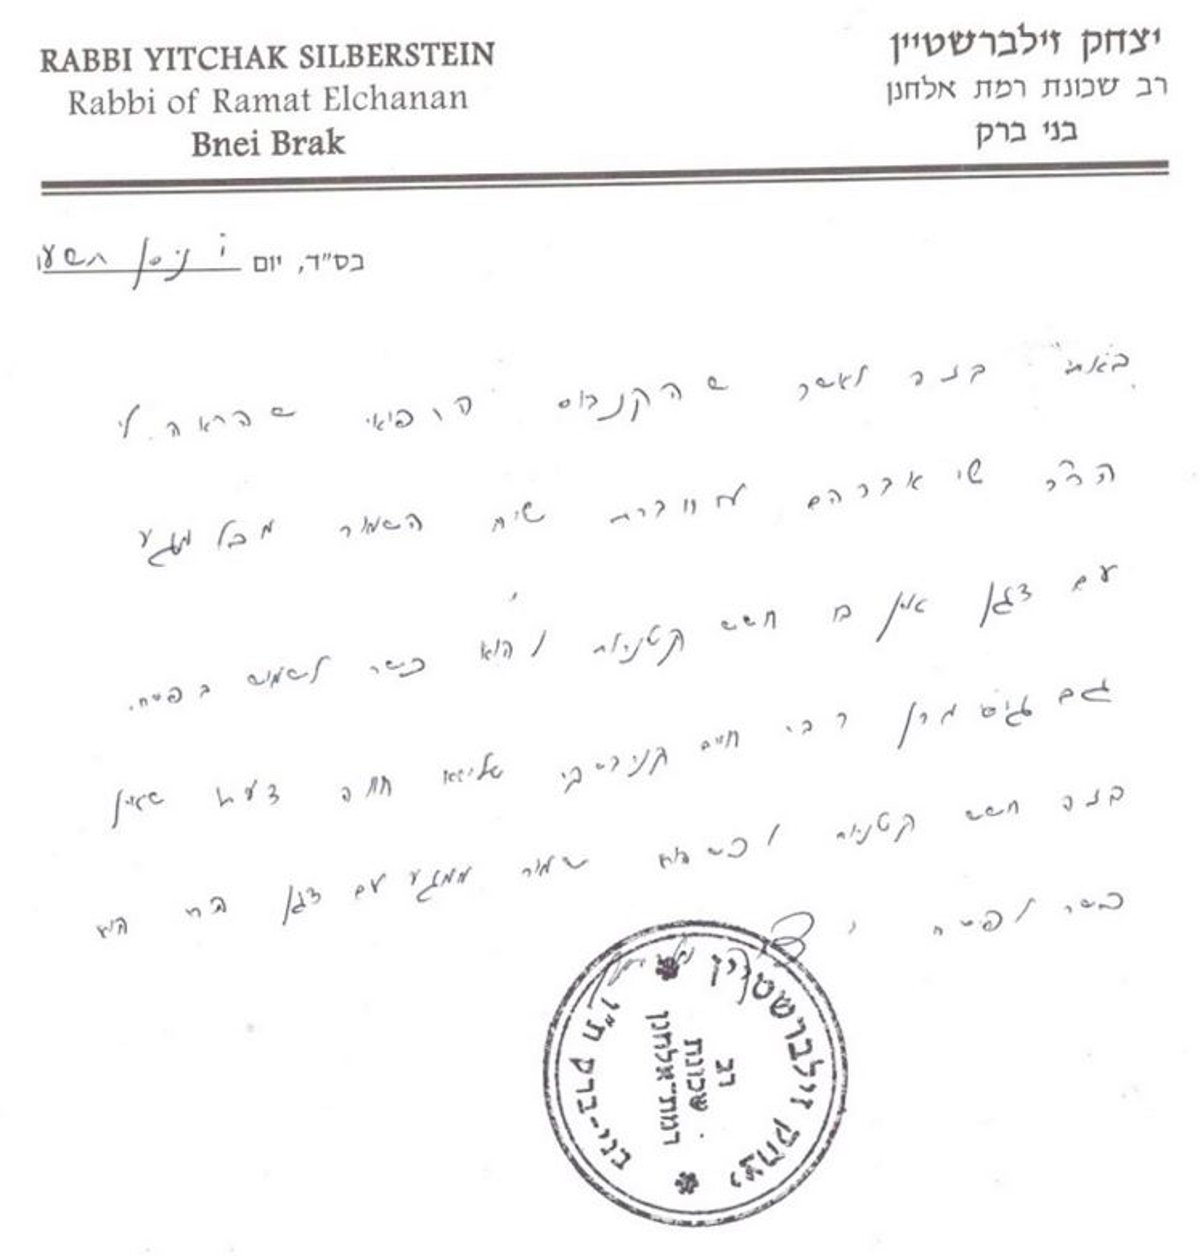 RABBI YITCHAK SILBERSTEIN
Rabbi of Ramat Elchanan
Bnei Brak
יצחק זילברשטיין
רב שכונת רמת אלחנן
בני ברק
בס"ד, יום ו' ניסן תשע"ו
באתי בזה לאשר שהקנבוס הרפואי שהראה לי
הר"ר שי אברהם מחברת שיח השמור מכל מגע
עם דגן אין בו חשש קטניות והוא כשר לשמוש בפסח.
גם מרן רבי חיים קנייבסקי שליט"א חוה דעתו שאין
בזה חשש קטניות וכשהוא שמור ממגע עם דגן הרי הוא
כשר לפסח
יצחק זילברשטיין
רב
שכונת
רמת אלחנן
בני-ברק ת"ו